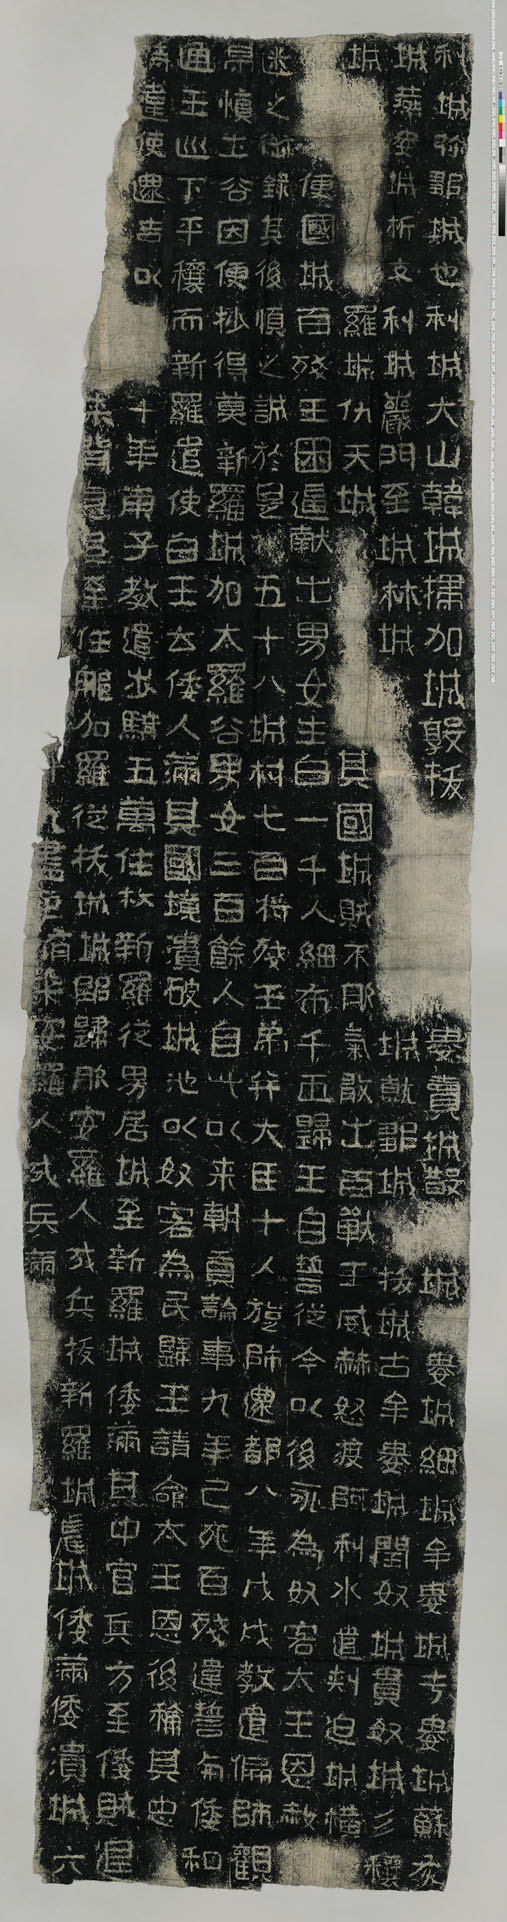 利城弥鄒城也利城大山韓城掃加城敦拔婁賣城散城婁城細城牟婁城于婁城蘇灰
城燕婁城析支利城巖門至城林城城就鄒城拔城古牟婁城閏奴城貫奴城彡穰
城羅城仇天城其國城賊不服氣敢出百戰王威赫怒渡阿利水遣刺迫城橫
便國城百殘王困逼獻出男女生白一千人細布千匝歸王自誓從今以後永為奴客太王恩赦
迷之御錄其後順之誠於是五十八城村七百將殘王弟幷大臣十人旋師還都八年戊戌教遣偏師觀
帛慎土谷因便抄得莫新羅城加太羅谷男女三百餘人自此以来朝貢論事九年己亥百殘違誓与倭和
通王巡下平穰而新羅遣使白王云倭人滿其國境潰破城池以奴客為民歸王請命太王恩後稱其忠
誠違使還告以十年庚子教遣步騎五萬往救新羅從男居城至新羅城倭滿其中官兵方至倭賊退
来背息追至任那加羅從拔城城即歸服安羅人戍兵拔新羅城晨城倭滿倭潰城六
盡更隨来安羅人戍兵滿